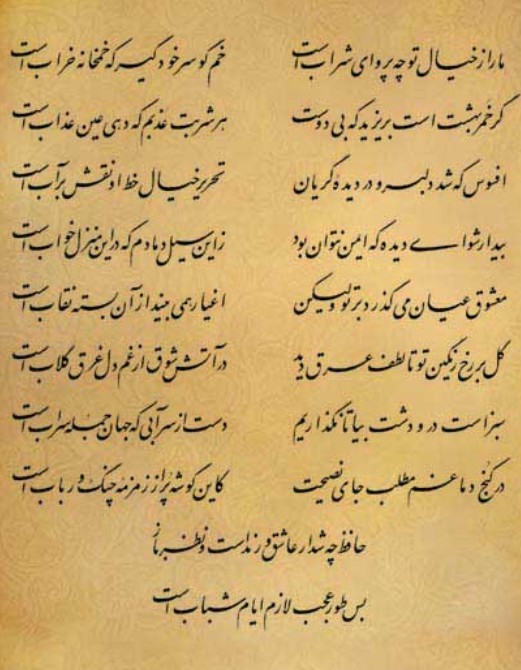 ما را ز خیال تو چه پروای شراب است خم گو سر خود گیر که خمخانه خراب است
گر خمر بهشت است بریزید که بی دوست هر شربت عذبم که دهی عین عذاب است
افسوس که شد دلبر و در دیده گریان تحریر خیال خط او نقش بر آب است
بیدار شو ای دیده که ایمن نتوان بود زین سیل دمادم که در این منزل خواب است
معشوق عیان می گذرد بر تو ولیکن اغیار همی بیند از آن بسته نقاب است
گل بر رخ رنگین تو تا لطف عرق دید در آتش شوق از غم دل غرق گلاب است
سبز است در و دشت بیا تا نگذاریم دست از سر آبی که جهان جمله سراب است
در کنج دماغم مطلب جای نصیحت کاین گوشه پر از زمزمه چنگ و رباب است
حافظ چه شد ار عاشق و رند است و نظرباز
بس طور عجب لازم ایام شباب است